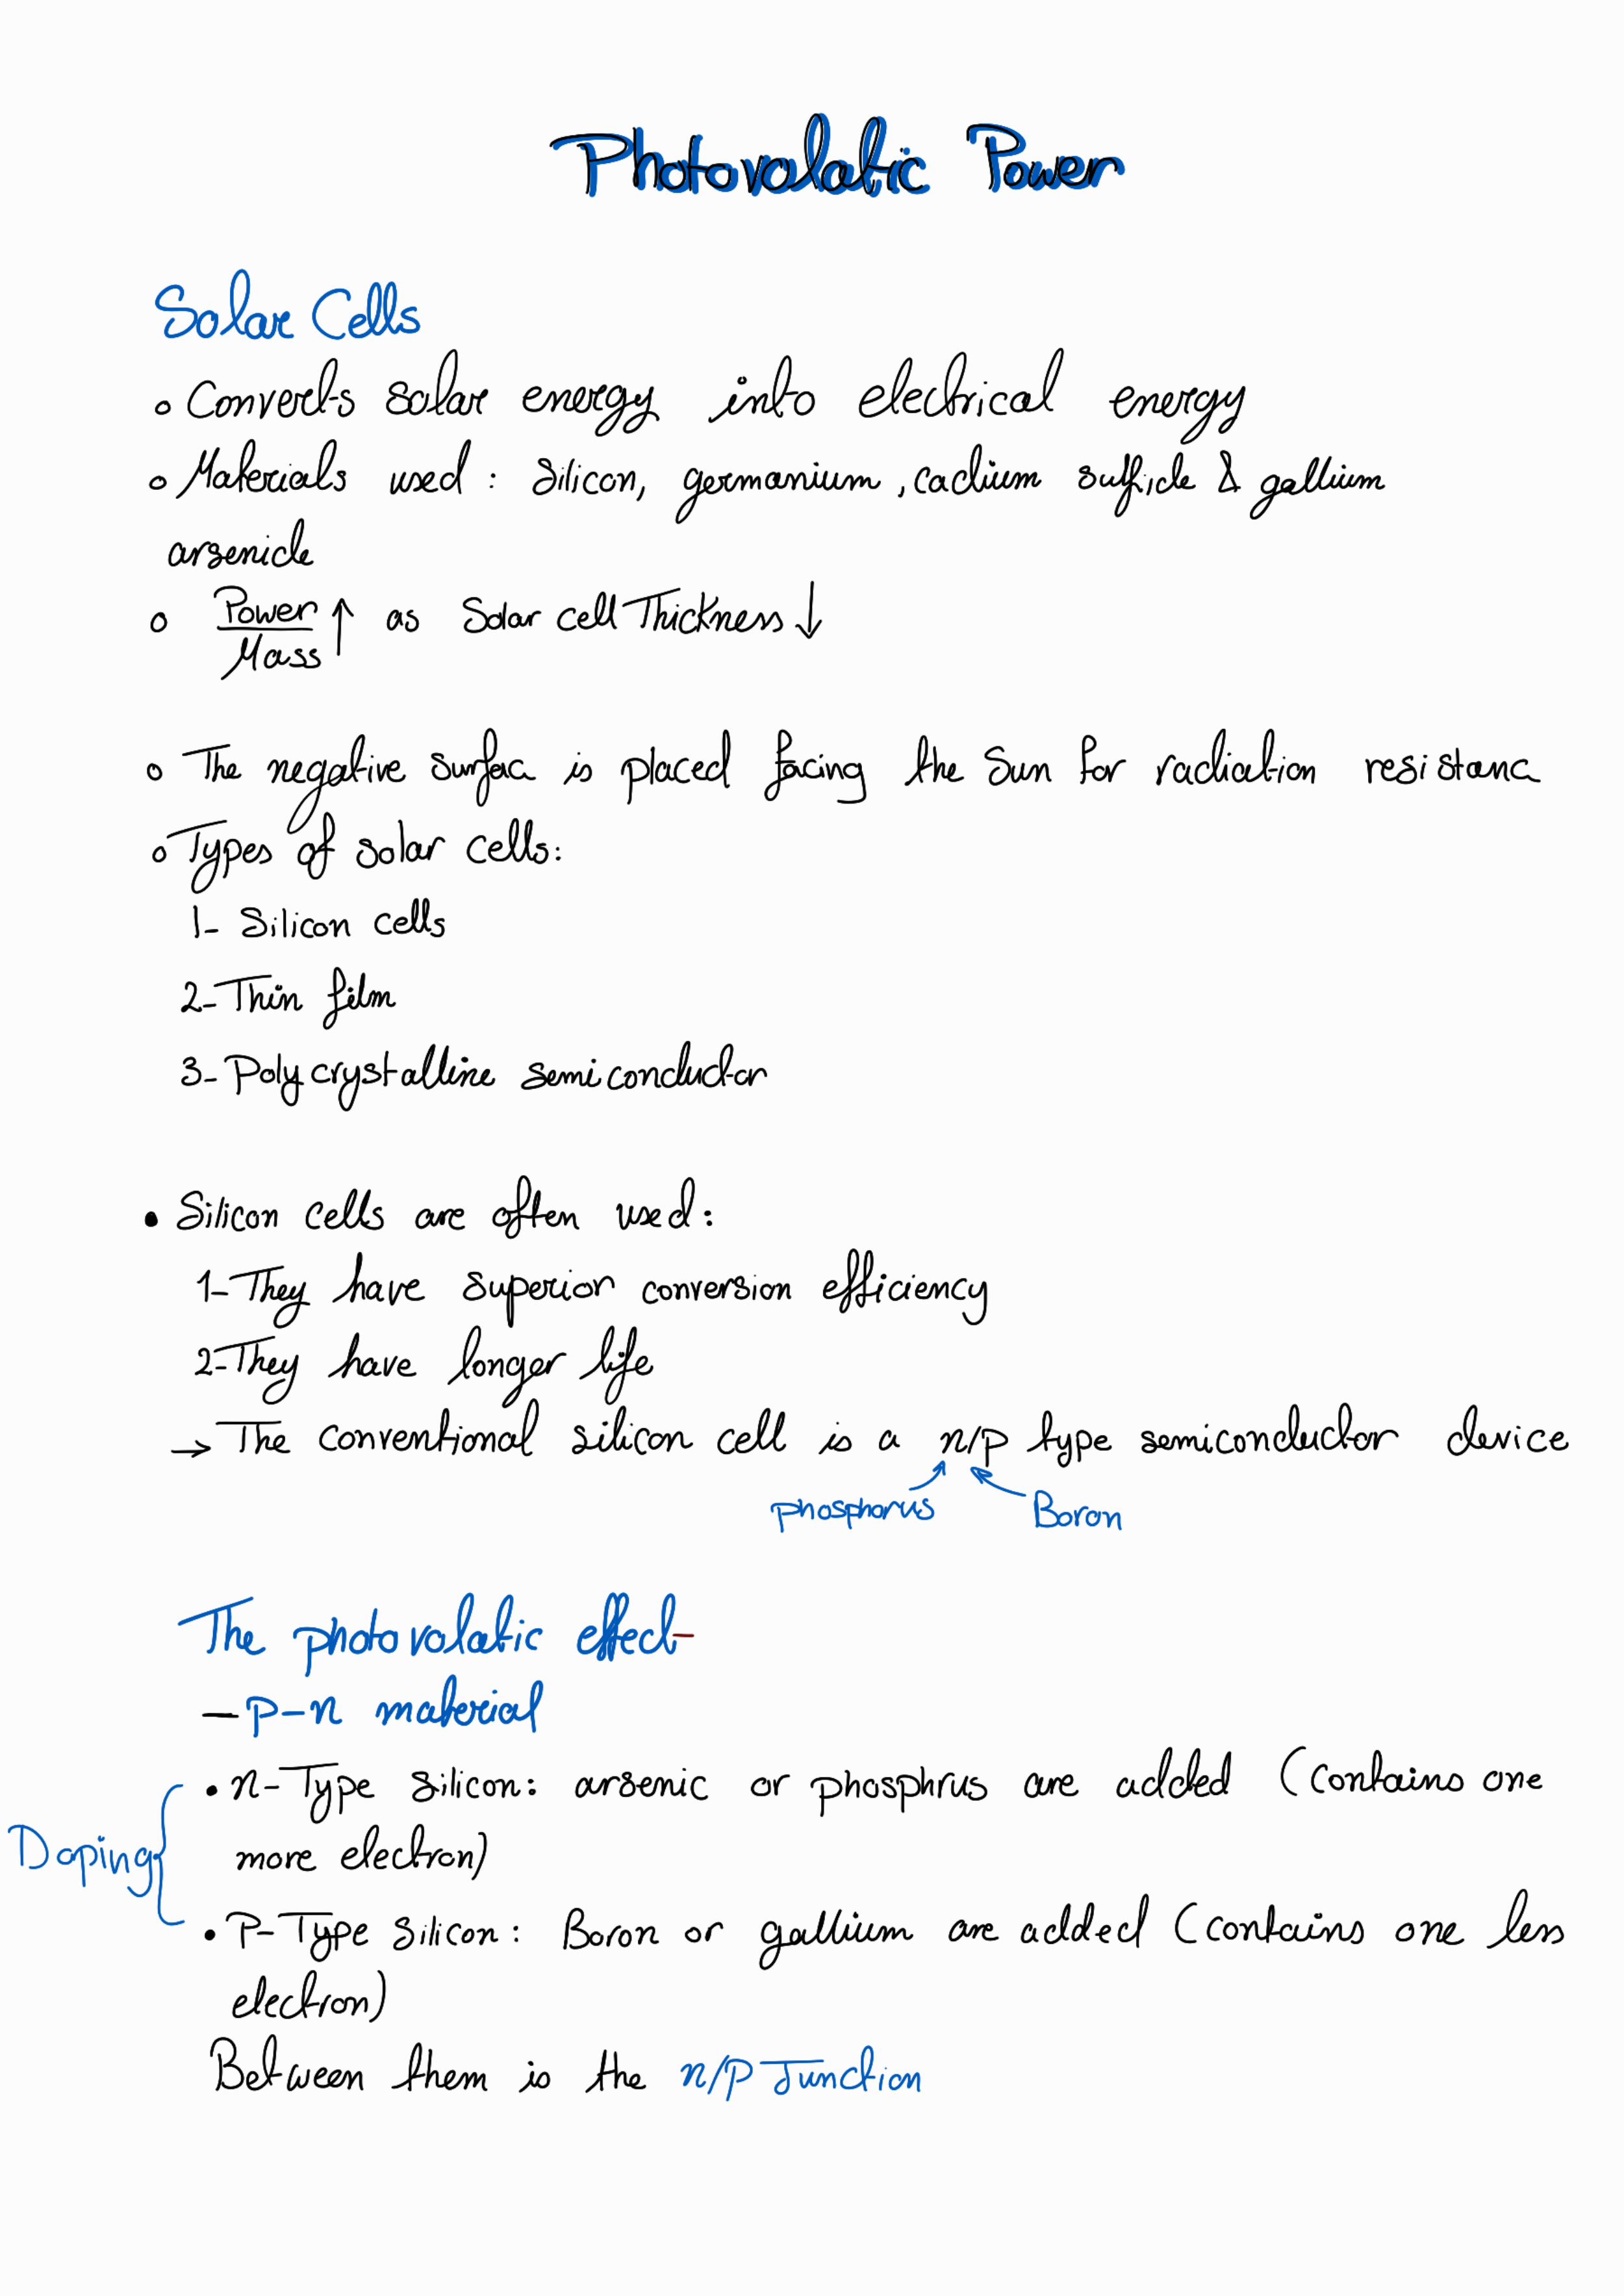 Photovolatic Power
Solar Cells
◦ Converts solar energy into electrical energy
◦ Materials used : Silicon, germanium , cadium sulfide & gallium
arsenide
◦ Power/Mass ↑ as Solar cell Thickness ↓
◦ The negative surface is placed facing the Sun for radiation resistance
◦ Types of solar cells:
1- Silicon cells
2- Thin film
3- Polycrystalline semiconductor
• Silicon cells are often used:
1- They have superior conversion efficiency
2- They have longer life
→ The conventional silicon cell is a n/p type semiconductor device
phosphorus Boron
The photovolatic effect
– p-n material
• n-Type silicon: arsenic or phosphrus are added (contains one
more electron)
Doping
• P-Type silicon: Boron or gallium are added (contains one less
electron)
Between them is the n/p Junction